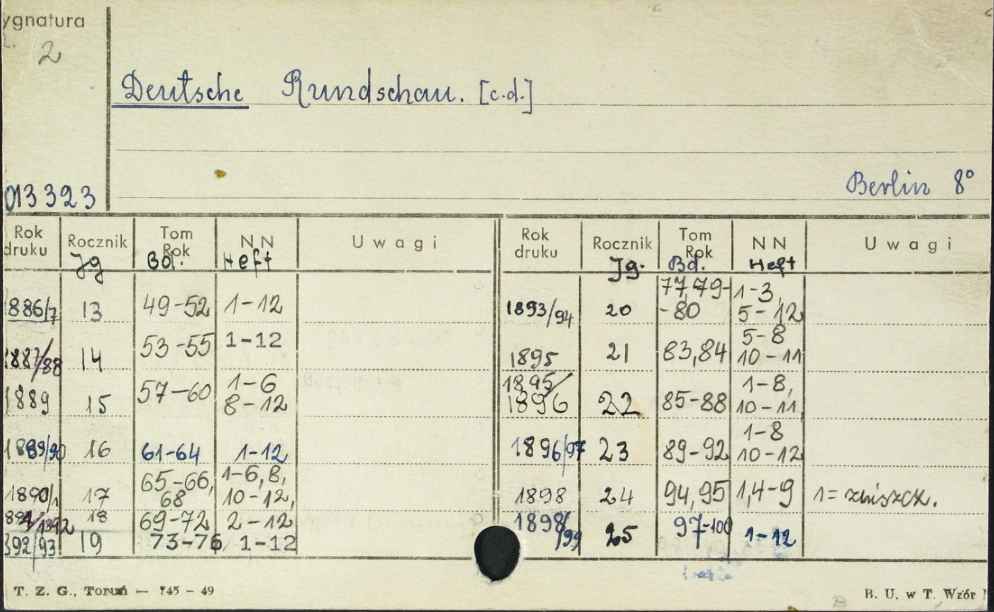 ygnatura
2
Deutsche Rundschau. [c.d.]
013323
Berlin 8°
Rok druku Rocznik Jg Tom Rok Bd. N N Heft U w a g i
1886/7 13 49-52 1-12
1887/88 14 53-55 1-12
1889 15 57-60 1-6 8-12
1889/90 16 61-64 1-12
1890/1 17 65-66, 68 1-6, 8, 10-12,
18 69-72 2-12
892/93 19 73-76 1-12
Rok druku Rocznik Jg. Tom Rok Bd. N N Heft U w a g i
1893/94 20 77,79--80 1-3, 5-12
1895 21 83,84 5-8 10-11
1895/1896 22 85-88 1-8, 10-11,
1896/97 23 89-92 1-8 10-12
1898 24 94,95 1,4-9 1= zniszcz.
1898/99 25 97-100 1-12
T. Z. G., Toruń — 745 - 49
B. U. w T. Wzór